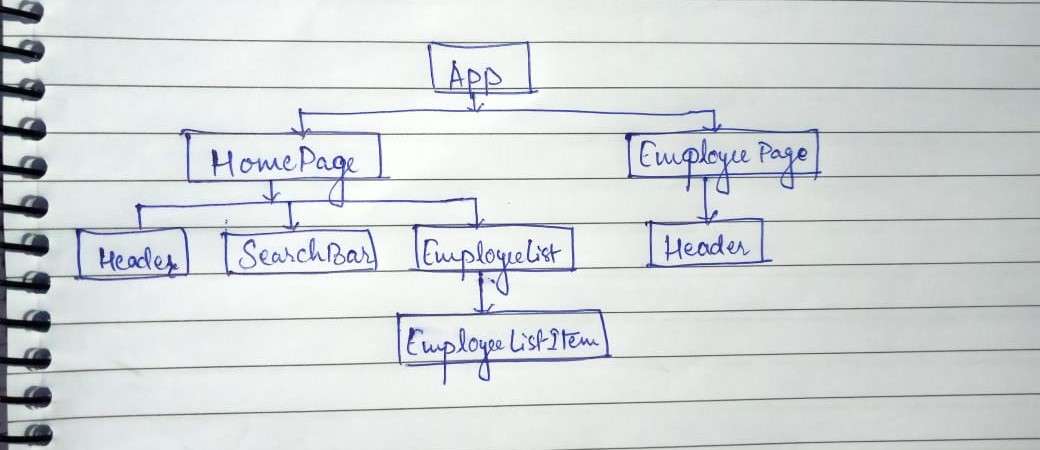 App
HomePage
Employee Page
Header
SearchBar
EmployeeList
Header
EmployeeListItem